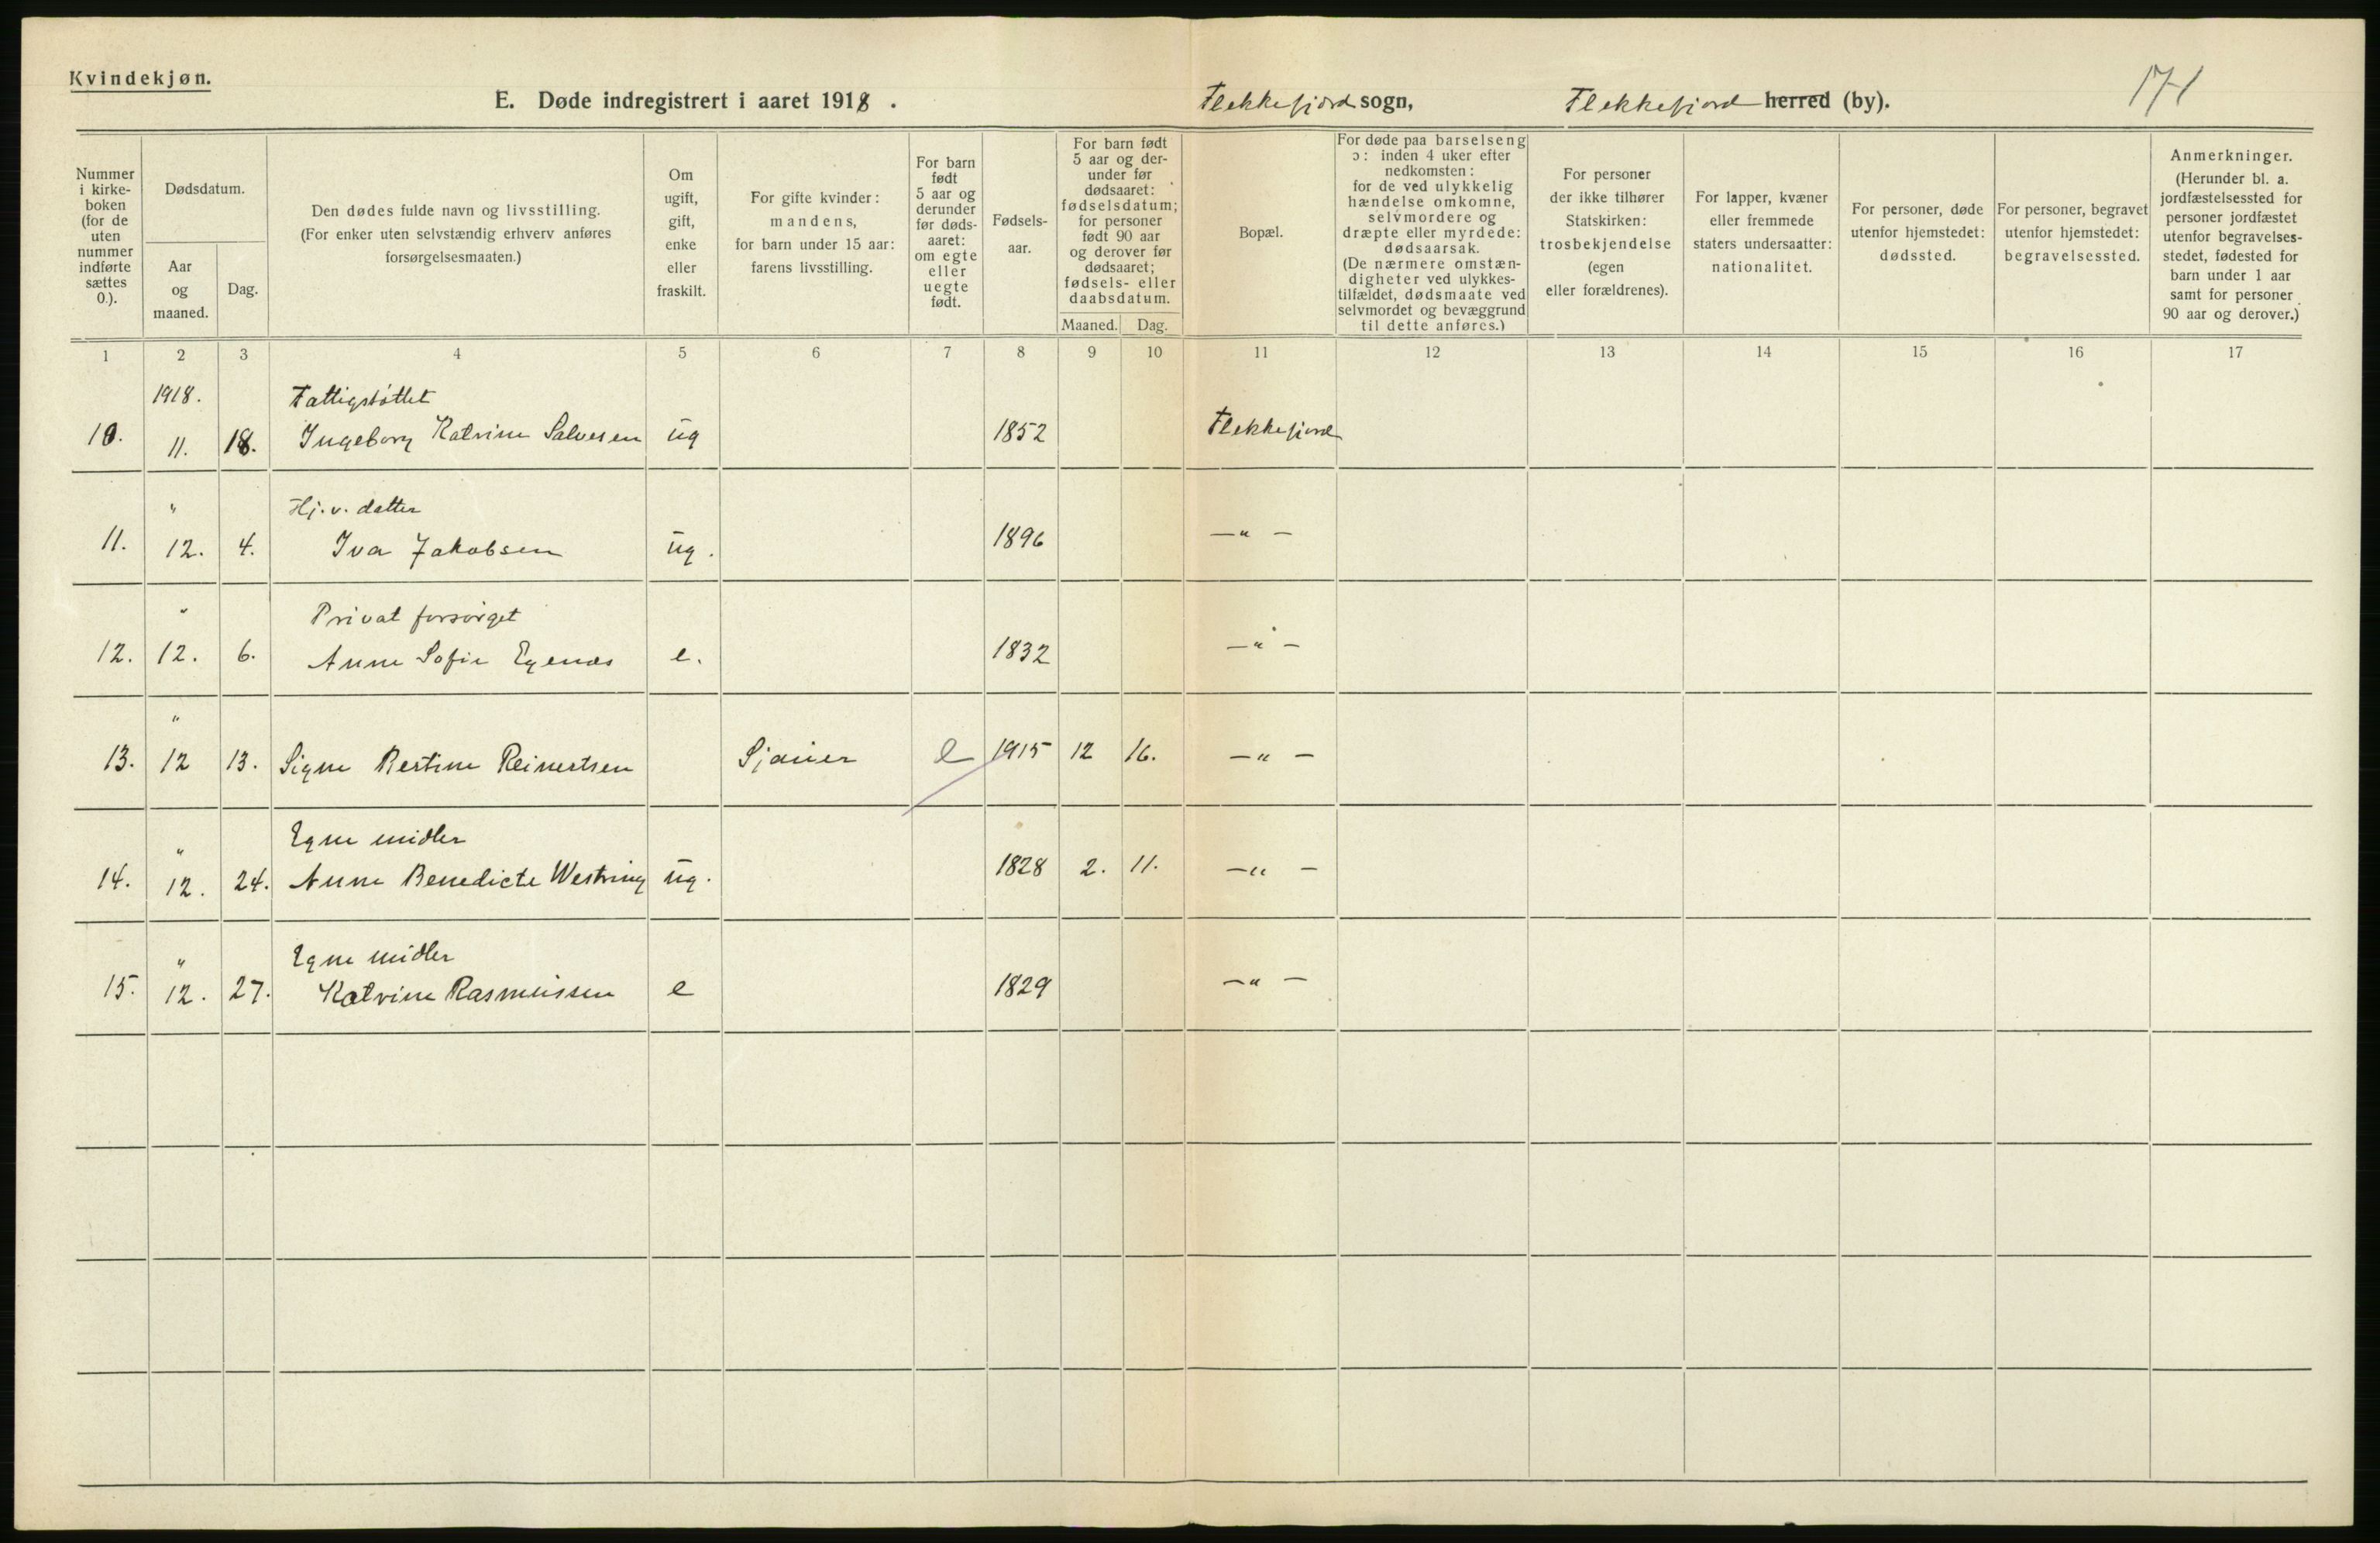 Kvindekjøn.
E. Døde indregistrert i aaret 1918.
Flekkefjord sogn, Flekkefjord herred (by).
171
Nummer i kirkeboken (for de uten nummer indførte sættes 0.).
Dødsdatum.
Aar og maaned.
Dag.
Den dødes fulde navn og livsstilling.
(For enker uten selvstændig erhverv anføres forsørgelsesmaaten.)
Om ugift, gift, enke eller fraskilt.
For gifte kvinder: mandens, for barn under 15 aar: farens livsstilling.
For barn født 5 aar og derunder før dødsaaret: om egte eller uegte født.
Fødselsaar.
For barn født 5 aar og derunder før dødsaaret: fødselsdatum; for personer født 90 aar og derover før dødsaaret; fødsels- eller daabsdatum.
Maaned. Dag.
Bopæl.
For døde paa barselseng ɔ: inden 4 uker efter nedkomsten: for de ved ulykkelig hændelse omkomne, selvmordere og dræpte eller myrdede: dødsaarsak.
(De nærmere omstændigheter ved ulykkestilfældet, dødsmaate ved selvmordet og bevæggrund til dette anføres.)
For personer der ikke tilhører Statskirken: trosbekjendelse (egen eller forældrenes).
For lapper, kvæner eller fremmede staters undersaatter: nationalitet.
For personer, døde utenfor hjemstedet: dødssted.
For personer, begravet utenfor hjemstedet: begravelsessted.
Anmerkninger.
(Herunder bl. a. jordfæstelsessted for personer jordfæstet utenfor begravelsesstedet, fødested for barn under 1 aar samt for personer 90 aar og derover.)
1 2 3 4 5 6 7 8 9 10 11 12 13 14 15 16 17
1918. Fattigstøttet
10. 11. 18. Ingeborg Katrine Salvesen ug 1852 Flekkefjord
" Hj. v. datter
11. 12. 4. Iva Jakobsen ug. 1896 — " —
" Privat forsørget
12. 12. 6. Anne Sofie Egenæs e. 1832 — " —
"
13. 12 13. Signe Bertine Reinertsen Sjauer e 1915 12 16. — " —
" Egne midler
14. 12. 24. Anne Benedicte Westring ug. 1828 2. 11. — " —
" Egne midler
15. 12. 27. Katrine Rasmussen e 1829 — " —